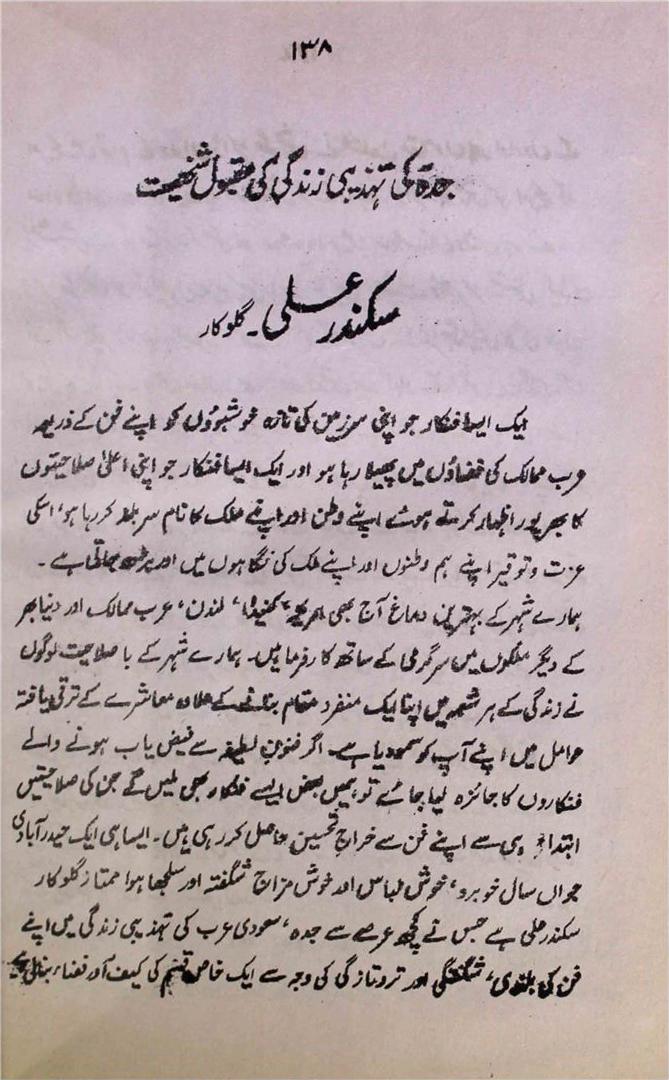 ۱۳۸
جدہ کی تہذیبی زندگی کی مقبول شخصیت
سکندر علی ۔ گلوکار
ایک ایسا فنکار جو اپنی سرزمین کی تازہ خوشبوؤں کو اپنے فن کے ذریعہ
عرب ممالک کی فضاؤں میں پھیلا رہا ہو اور ایک ایسا فنکار جو اپنی اعلیٰ صلاحیتوں
کا بھرپور اظہار کرتے ہوئے اپنے وطن اور اپنے ملک کا نام سربلند کر رہا ہو، اسکی
عزت و توقیر اپنے ہم وطنوں اور اپنے ملک کی نگاہوں میں اور بڑھ جاتی ہے ۔
ہمارے شہر کے بہترین دماغ آج بھی امریکہ، کینیڈا، لندن، عرب ممالک اور دنیا بھر
کے دیگر ملکوں میں سرگرمی کے ساتھ کارفرما ہیں۔ ہمارے شہر کے با صلاحیت لوگوں
نے زندگی کے ہر شعبہ میں اپنا ایک منفرد مقام بنانے کے علاوہ معاشرے کے ترقی یافتہ
عوامل میں اپنے آپ کو سمو دیا ہے۔ اگر فنونِ لطیفہ سے فیض یاب ہونے والے
فنکاروں کا جائزہ لیا جائے تو ہمیں بعض ایسے فنکار بھی ملیں گے جن کی صلاحیتیں
ابتداء ہی سے اپنے فن سے خراج تحسین حاصل کر رہی ہیں۔ ایسا ہی ایک حیدرآبادی
جواں سال خوبرو، خوش لباس اور خوش مزاج شگفتہ اور سلجھا ہوا ممتاز گلوکار
سکندر علی ہے جس نے کچھ عرصے سے جدہ، سعودی عرب کی تہذیبی زندگی میں اپنے
فن کی بلندی، شگفتگی اور تروتازگی کی وجہ سے ایک خاص قسم کی کیف آور فضاء